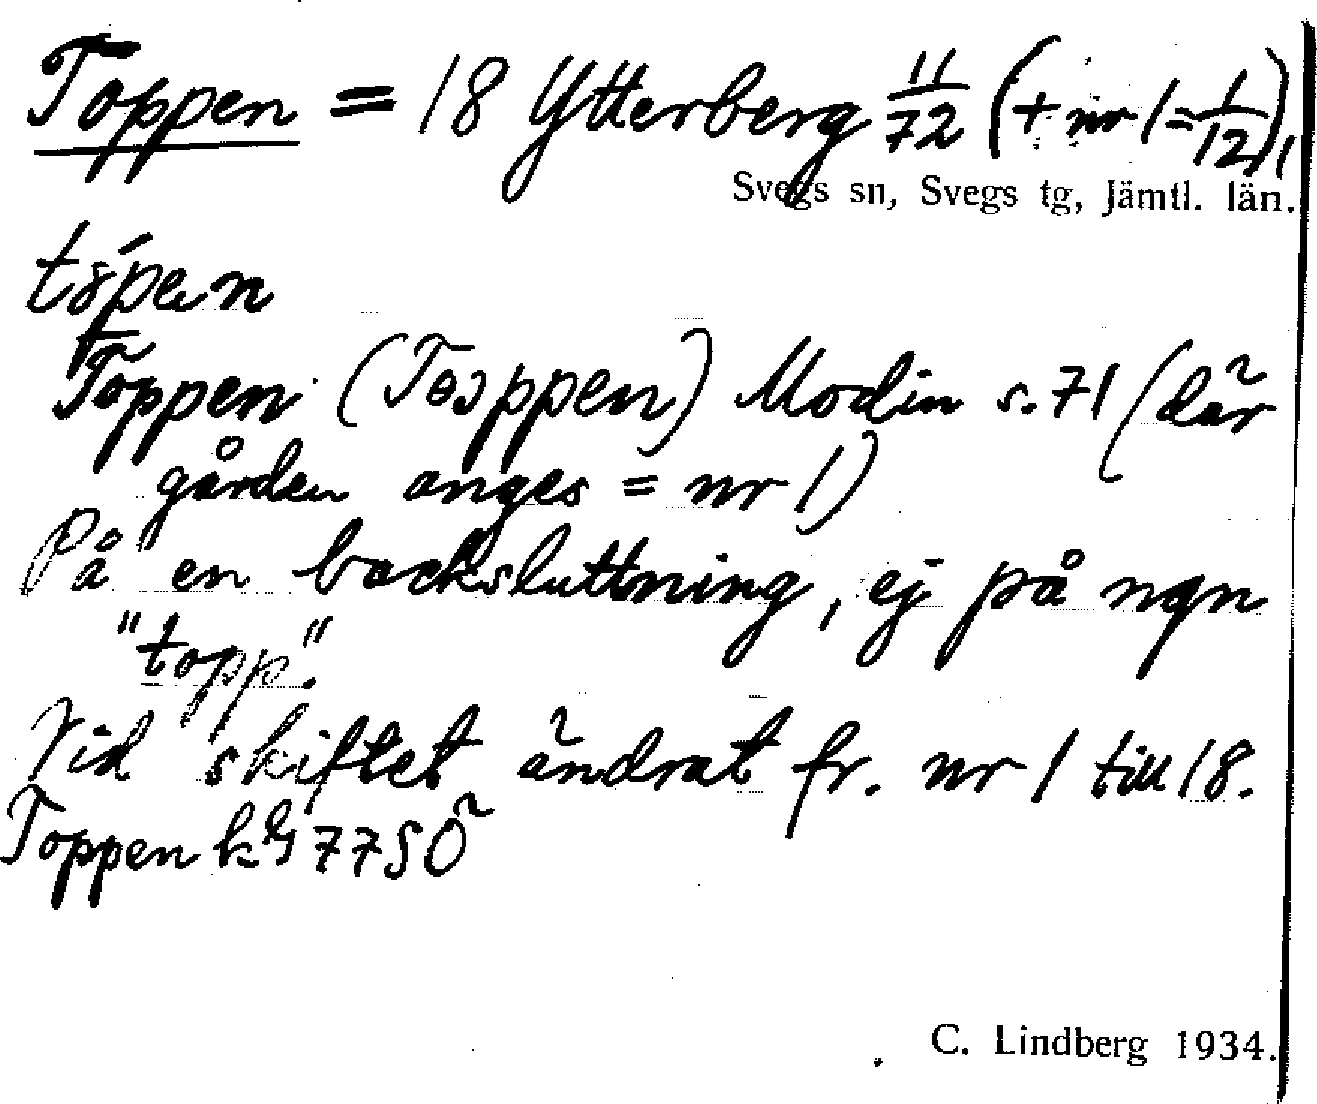 Toppen = 18 Ytterberg 11/72 (+ nr 1 = 1/12),
Svegs sn, Svegs tg, Jämtl. län.
Toppen (Toppen) Modin s. 71 (där
gården anges = nr 1)
På en backsluttning, ej på ngn
"topp".
Vid skiftet ändrat fr. nr 1 till 18.
Toppen 77 SÖ
C. Lindberg 1934.